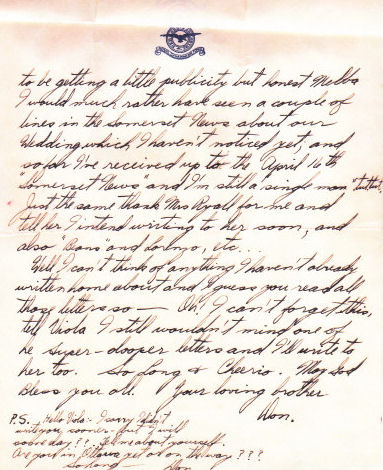 to be getting a little publicity but honest Melba
I would much rather have seen a couple of
lines in the Somerset News about our
Wedding which I haven't noticed yet, and
so far I've received up to the April 16th
"Somerset News" and I'm still a single man "tut tut".
Just the same thank Mrs Ryall for me and
tell her I intend writing to her soon, and
also "Oans" and etc...
Well I can't think of anything I haven't already
written home about and I guess you read all
those letters so — Oh! I can't forget this,
tell Viola I still wouldn't mind one of
he super-dooper letters and I'll write to
her too. So Long & Cheerio. May God
Bless you all. Your loving brother
Don.
P.S. Hello Viola - I sorry I didn't
write you sooner - but I will
someday??. Tell me about yourself.
Are you in Ottawa yet or on the way???
So Long — Don